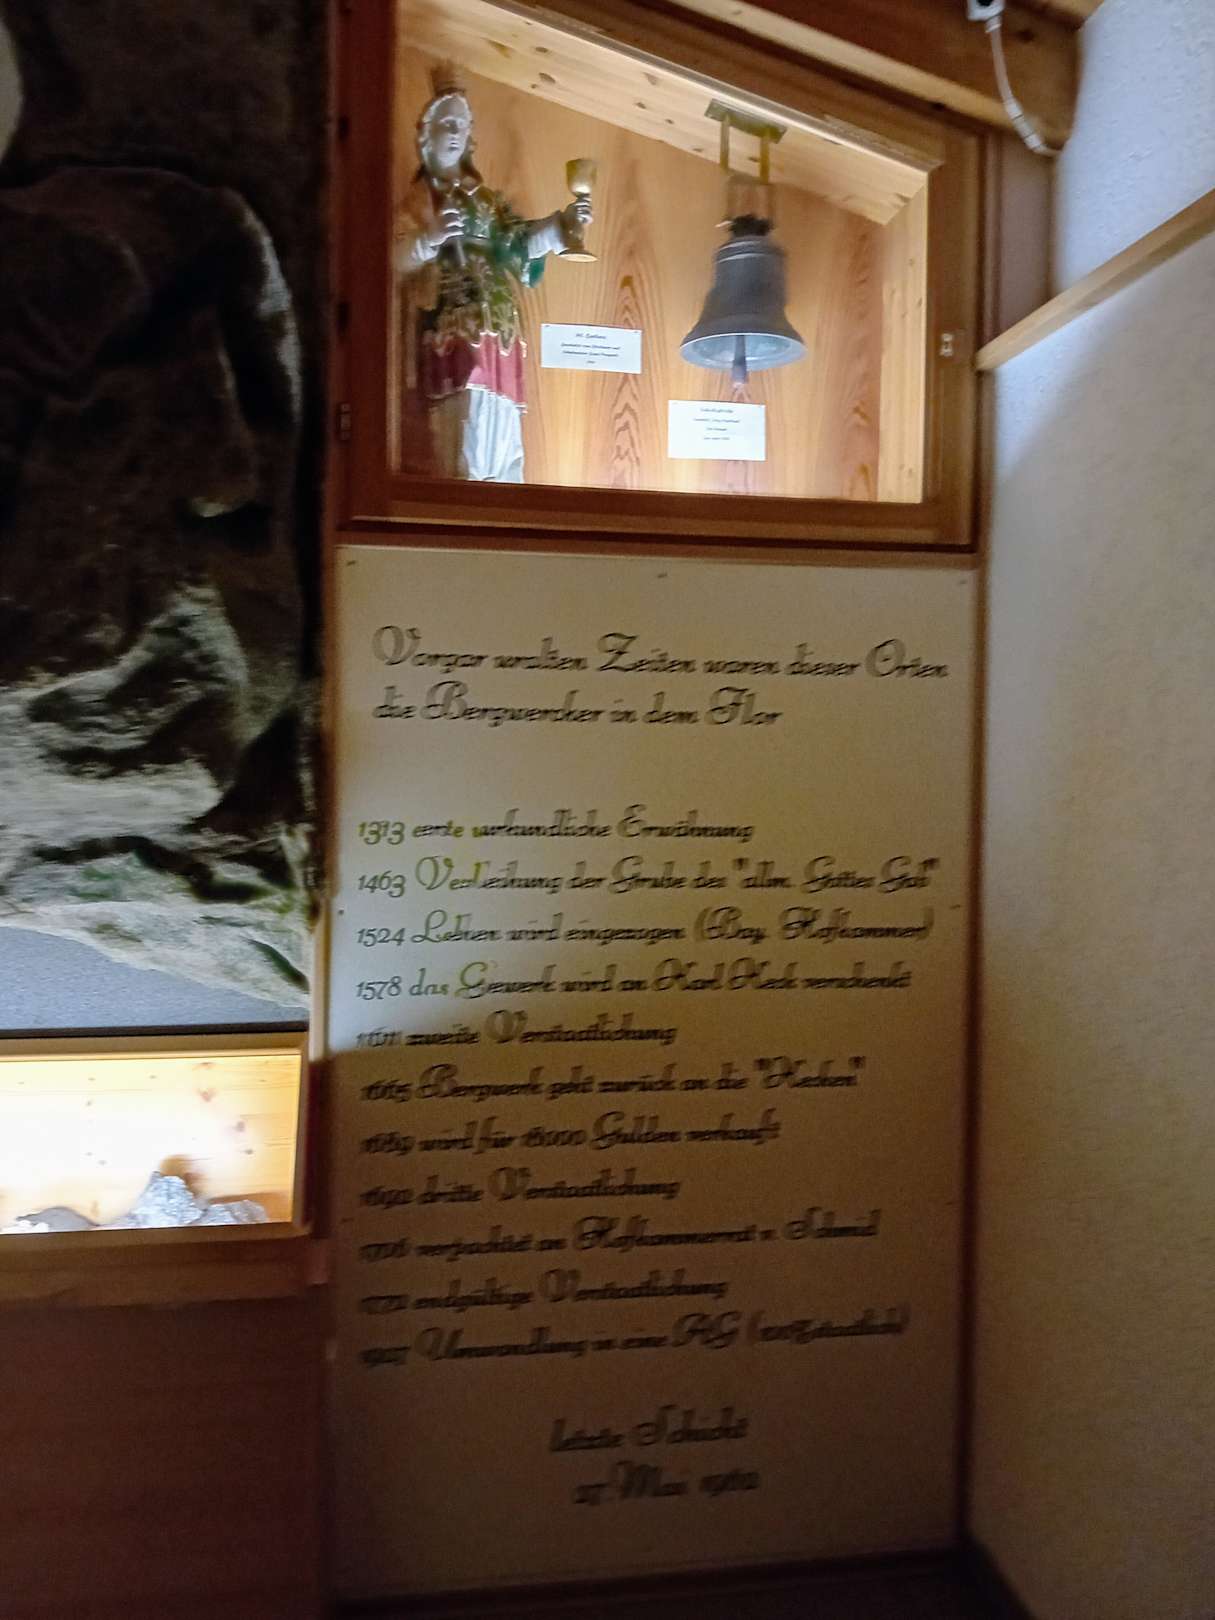 Hl. Barbara
Vorgar uralten Zeiten waren dieser Orten
die Bergwercker in dem Flor
1313 erste urkundliche Erwähnung
1463 Verleihung der Grube des "allm. Gottes Gab"
1524 Lehen wird eingezogen (Bay. Hofkammer)
1578 das Gewerk wird an Karl Heck verschenkt
1611 zweite Verstaatlichung
1665 Bergwerk geht zurück an die "Hecken"
1689 wird für 18000 Gulden verkauft
1692 dritte Verstaatlichung
verpachtet an Hofkammerrat v. Schmid
1772 endgültige Verstaatlichung
1927 Umwandlung in eine AG (100% staatlich)
letzte Schicht
Mai 1962